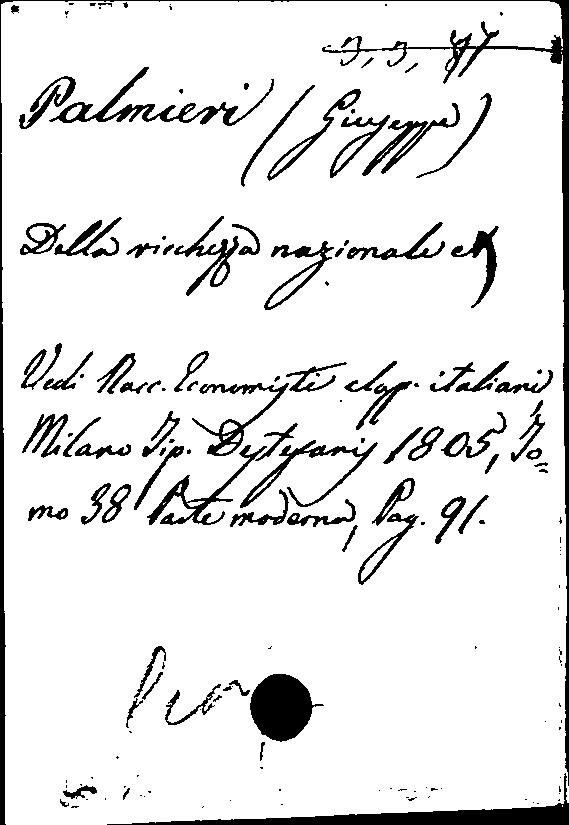 Palmieri (Giuseppe)
Della ricchezza nazionale ec
Vedi Racc. Economisti clap. italiani,
Milano Tip. Destefanis 1805, To=
mo 38 Parte moderna, Pag. 91.